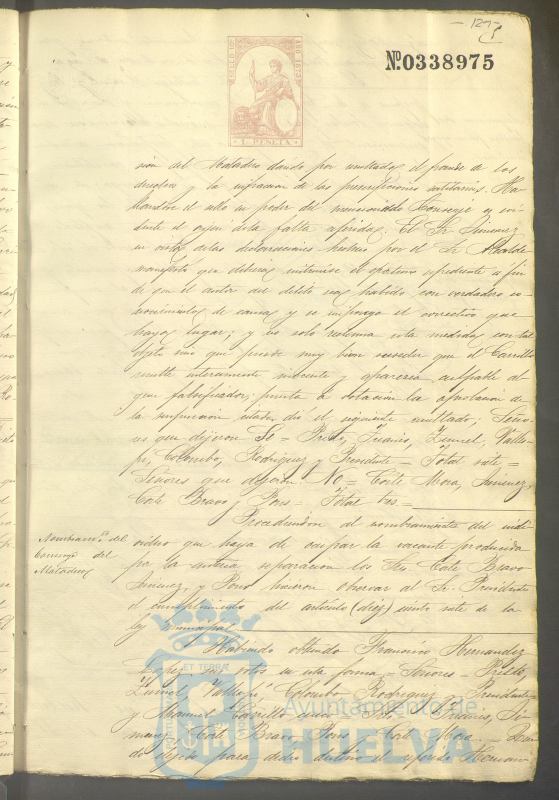 127
Nº 0338975
SELLO 11º AÑO 1873
1 PESETA
sion del Matadero dando por resultado el fraude de los
derechos y la infraccion de las prescripciones sanitarias. Ha-
llandose el sello en poder del mencionado Conserge es evi-
dente el origen de la falta aferida. El Sr Jimenez
en vista de las declaraciones hechas por el Sr Alcalde
manifestó que debiera instruirse el oportuno espediente a fin
de que el autor del delito sea habido con verdadero co-
nocimiento de causa y se imponga el correctivo que
haya lugar; y no solo reclama esta medida con tal
objeto sino que puede muy bien suceder que el Carrillo
resulte enteramente inocente y aparezca culpable el
que falsificador; puesta a votacion la aprobacion de
la suspension dió el siguiente resultado, Seño-
res que dijeron Si = Prieto, Juanis, Zunel, Valle-
jo, Colombo, Rodriguez y Presidente = Total siete =
Señores que dijeron No = Corte Mora, Jimenez,
Corte Bravo y Pons = Total tres =
Procediendose al nombramiento del indi-
Nombramto del
Conserge del
Matadero
viduo que haya de ocupar la vacante producida
por la anterior separacion los Sres Corte Bravo
Jimenez, y Pons hicieron observar al Sr. Presidente
el cumplimiento del artículo (diez) ciento siete de la
ley municipal
Habiendo obtenido Francisco Hernandez
Lopez votos en esta forma = Señores = Prieto,
Zunel Vallejo, Colombo Rodriguez y Presidente
y Manuel Carrillo Juanis, Ji-
menez Corte Bravo Pons Corte Mora
do elejido para dicho destino el referido Hernan-
ET TERRÆ
Ayuntamiento de
HUELVA